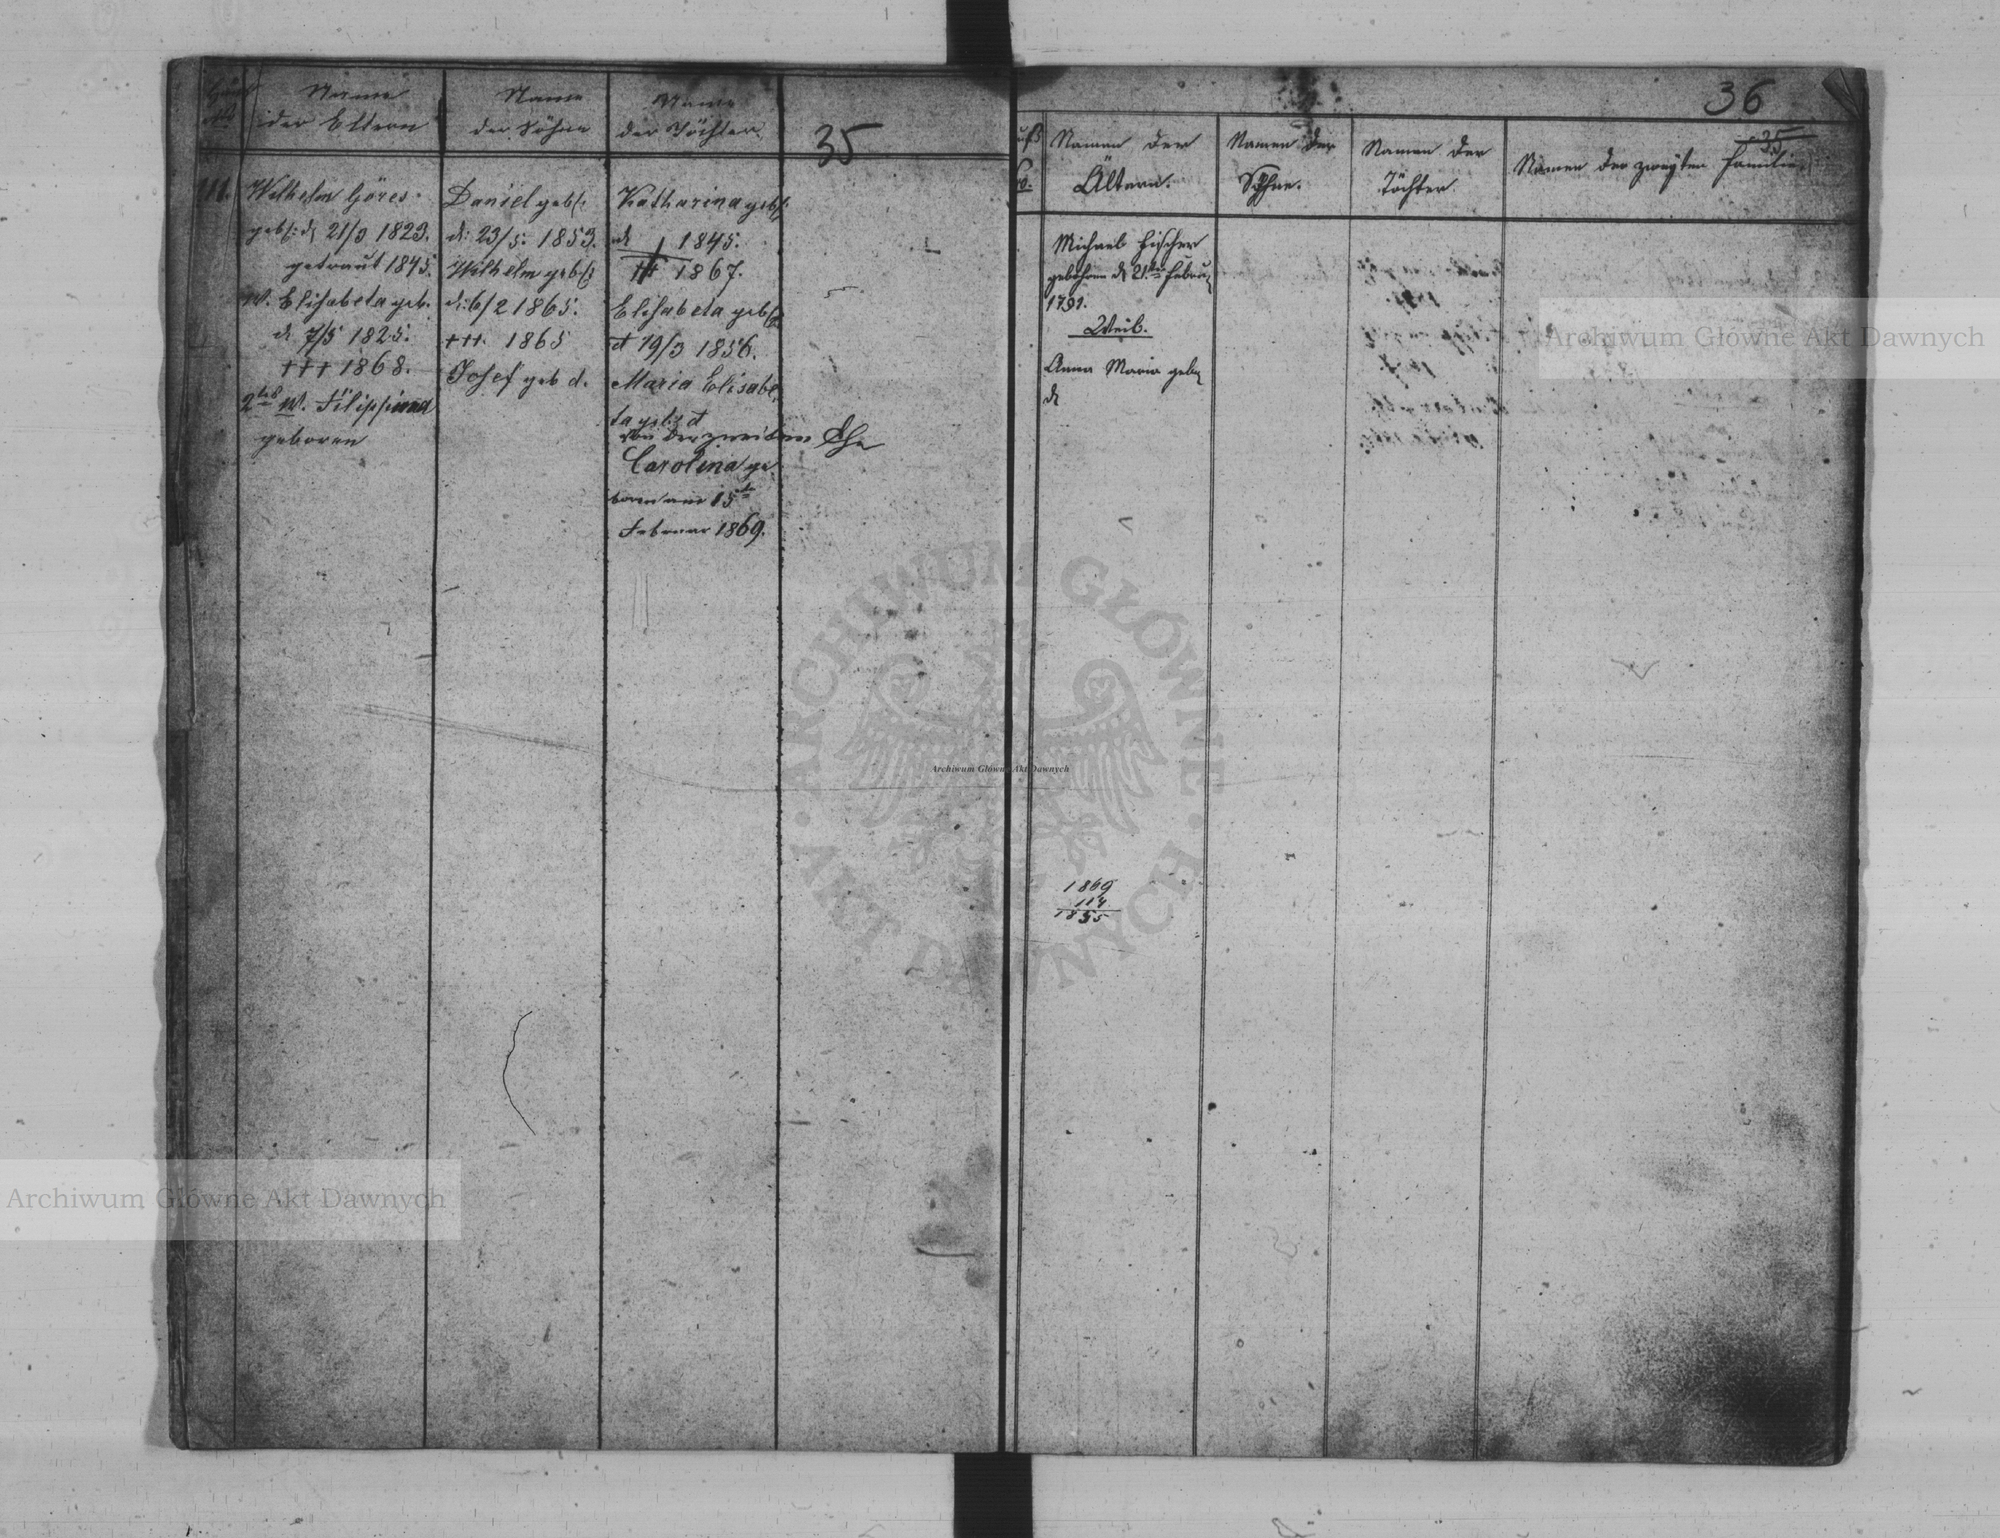 Name
der Eltern
Name
der Söhne
Name
der Töchter
35
Wilhelm Göres
geb: d. 21/3 1823.
getraut 1845.
W. Elisabeta geb.
d. 7/5 1825.
+++ 1868.
2tes W. Filippina
geboren
Daniel geb:
d: 23/5. 1853.
Wilhelm geb:
d: 6/2 1865.
+++. 1865
Josef geb d.
Katharina geb:
d 1845.
+++ 1867.
Elisabeta geb:
d 19/3 1856.
Maria Elisabe
ta geb: d
von der zweiten Ehe
Carolina ge
boren am 15t
Februar 1869.
36
35
Namen der
Ältern.
Namen der
Söhne.
Namen der
Töchter.
Namen der zweyten Familie.
Michael Fischer
gebohren d 21ten Febru
1791.
Weib.
Anna Maria geb
d
1869
114
1855
Archiwum Główne Akt Dawnych
ARCHIWUM GŁÓWNE
AKT DAWNYCH
Archiwum Główne Akt Dawnych
Archiwum Główne Akt Dawnych